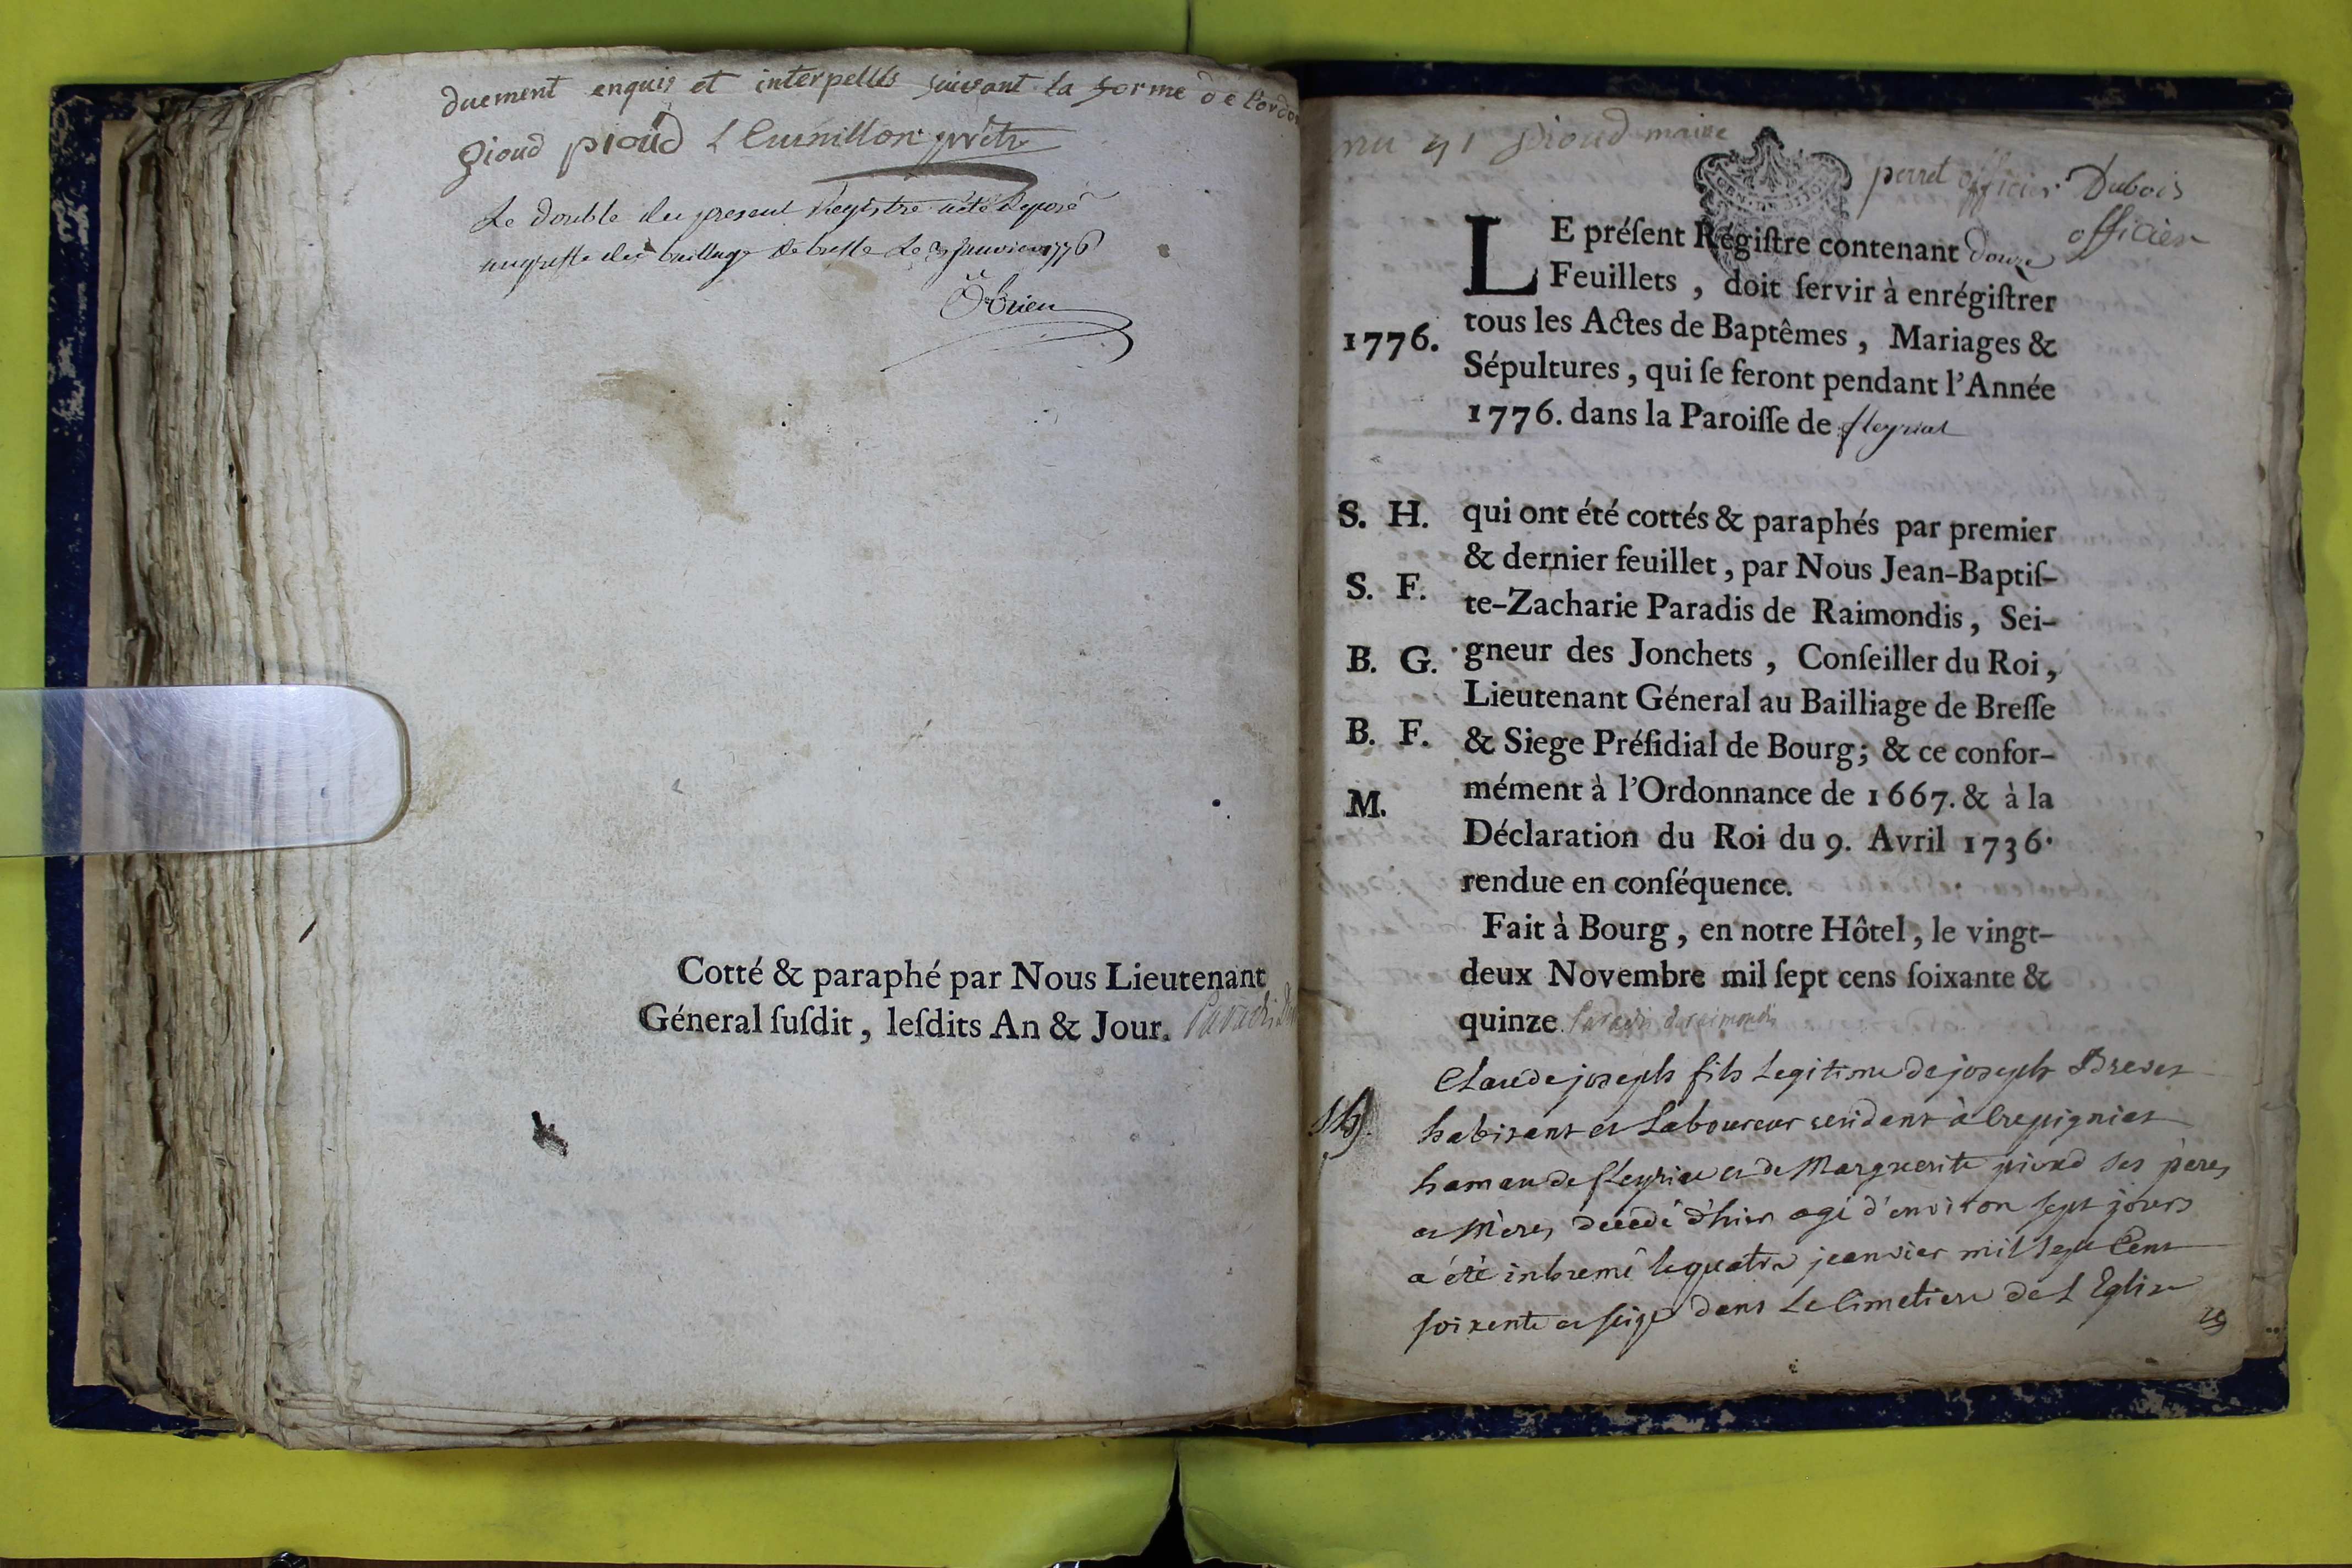 duement enquis et interpellés suivant la forme de l'ordon
pioud pioud L Cuenillon prêtr
Le double du present Registre a été deposé
au greffe du bailliage de bresse le janvier 1776
Cotté & paraphé par Nous Lieutenant
Géneral ſuſdit, leſdits An & Jour. Paradis
nu 41 pioud maire
perret officier Dubois
officier
LE préſent Régiſtre contenant douze
Feuillets, doit ſervir à enrégiſtrer
tous les Actes de Baptêmes, Mariages &
1776.
Sépultures, qui ſe feront pendant l'Année
1776. dans la Paroiſſe de fleyriat
S. H. qui ont été cottés & paraphés par premier
& dernier feuillet, par Nous Jean-Baptiſ-
S. F. te-Zacharie Paradis de Raimondis, Sei-
B. G. gneur des Jonchets, Conſeiller du Roi,
Lieutenant Géneral au Bailliage de Breſſe
B. F. & Siege Préſidial de Bourg; & ce confor-
M. mément à l'Ordonnance de 1667. & à la
Déclaration du Roi du 9. Avril 1736.
rendue en conſéquence.
Fait à Bourg, en notre Hôtel, le vingt-
deux Novembre mil ſept cens ſoixante &
quinze. Paradis deraimondis
Claude joseph fils Legitime de joseph Brevet
Sh. habitant et Laboureur residant à Crepignat
hamau de fleyriat et de Marguerite pioud ses père,
et Mère, decedé d'hier agé d'environ sept jours
a été inhumé le quatre jeanvier mil sept Cent
soixente et seize dans Le Cimetiere de L Eglise